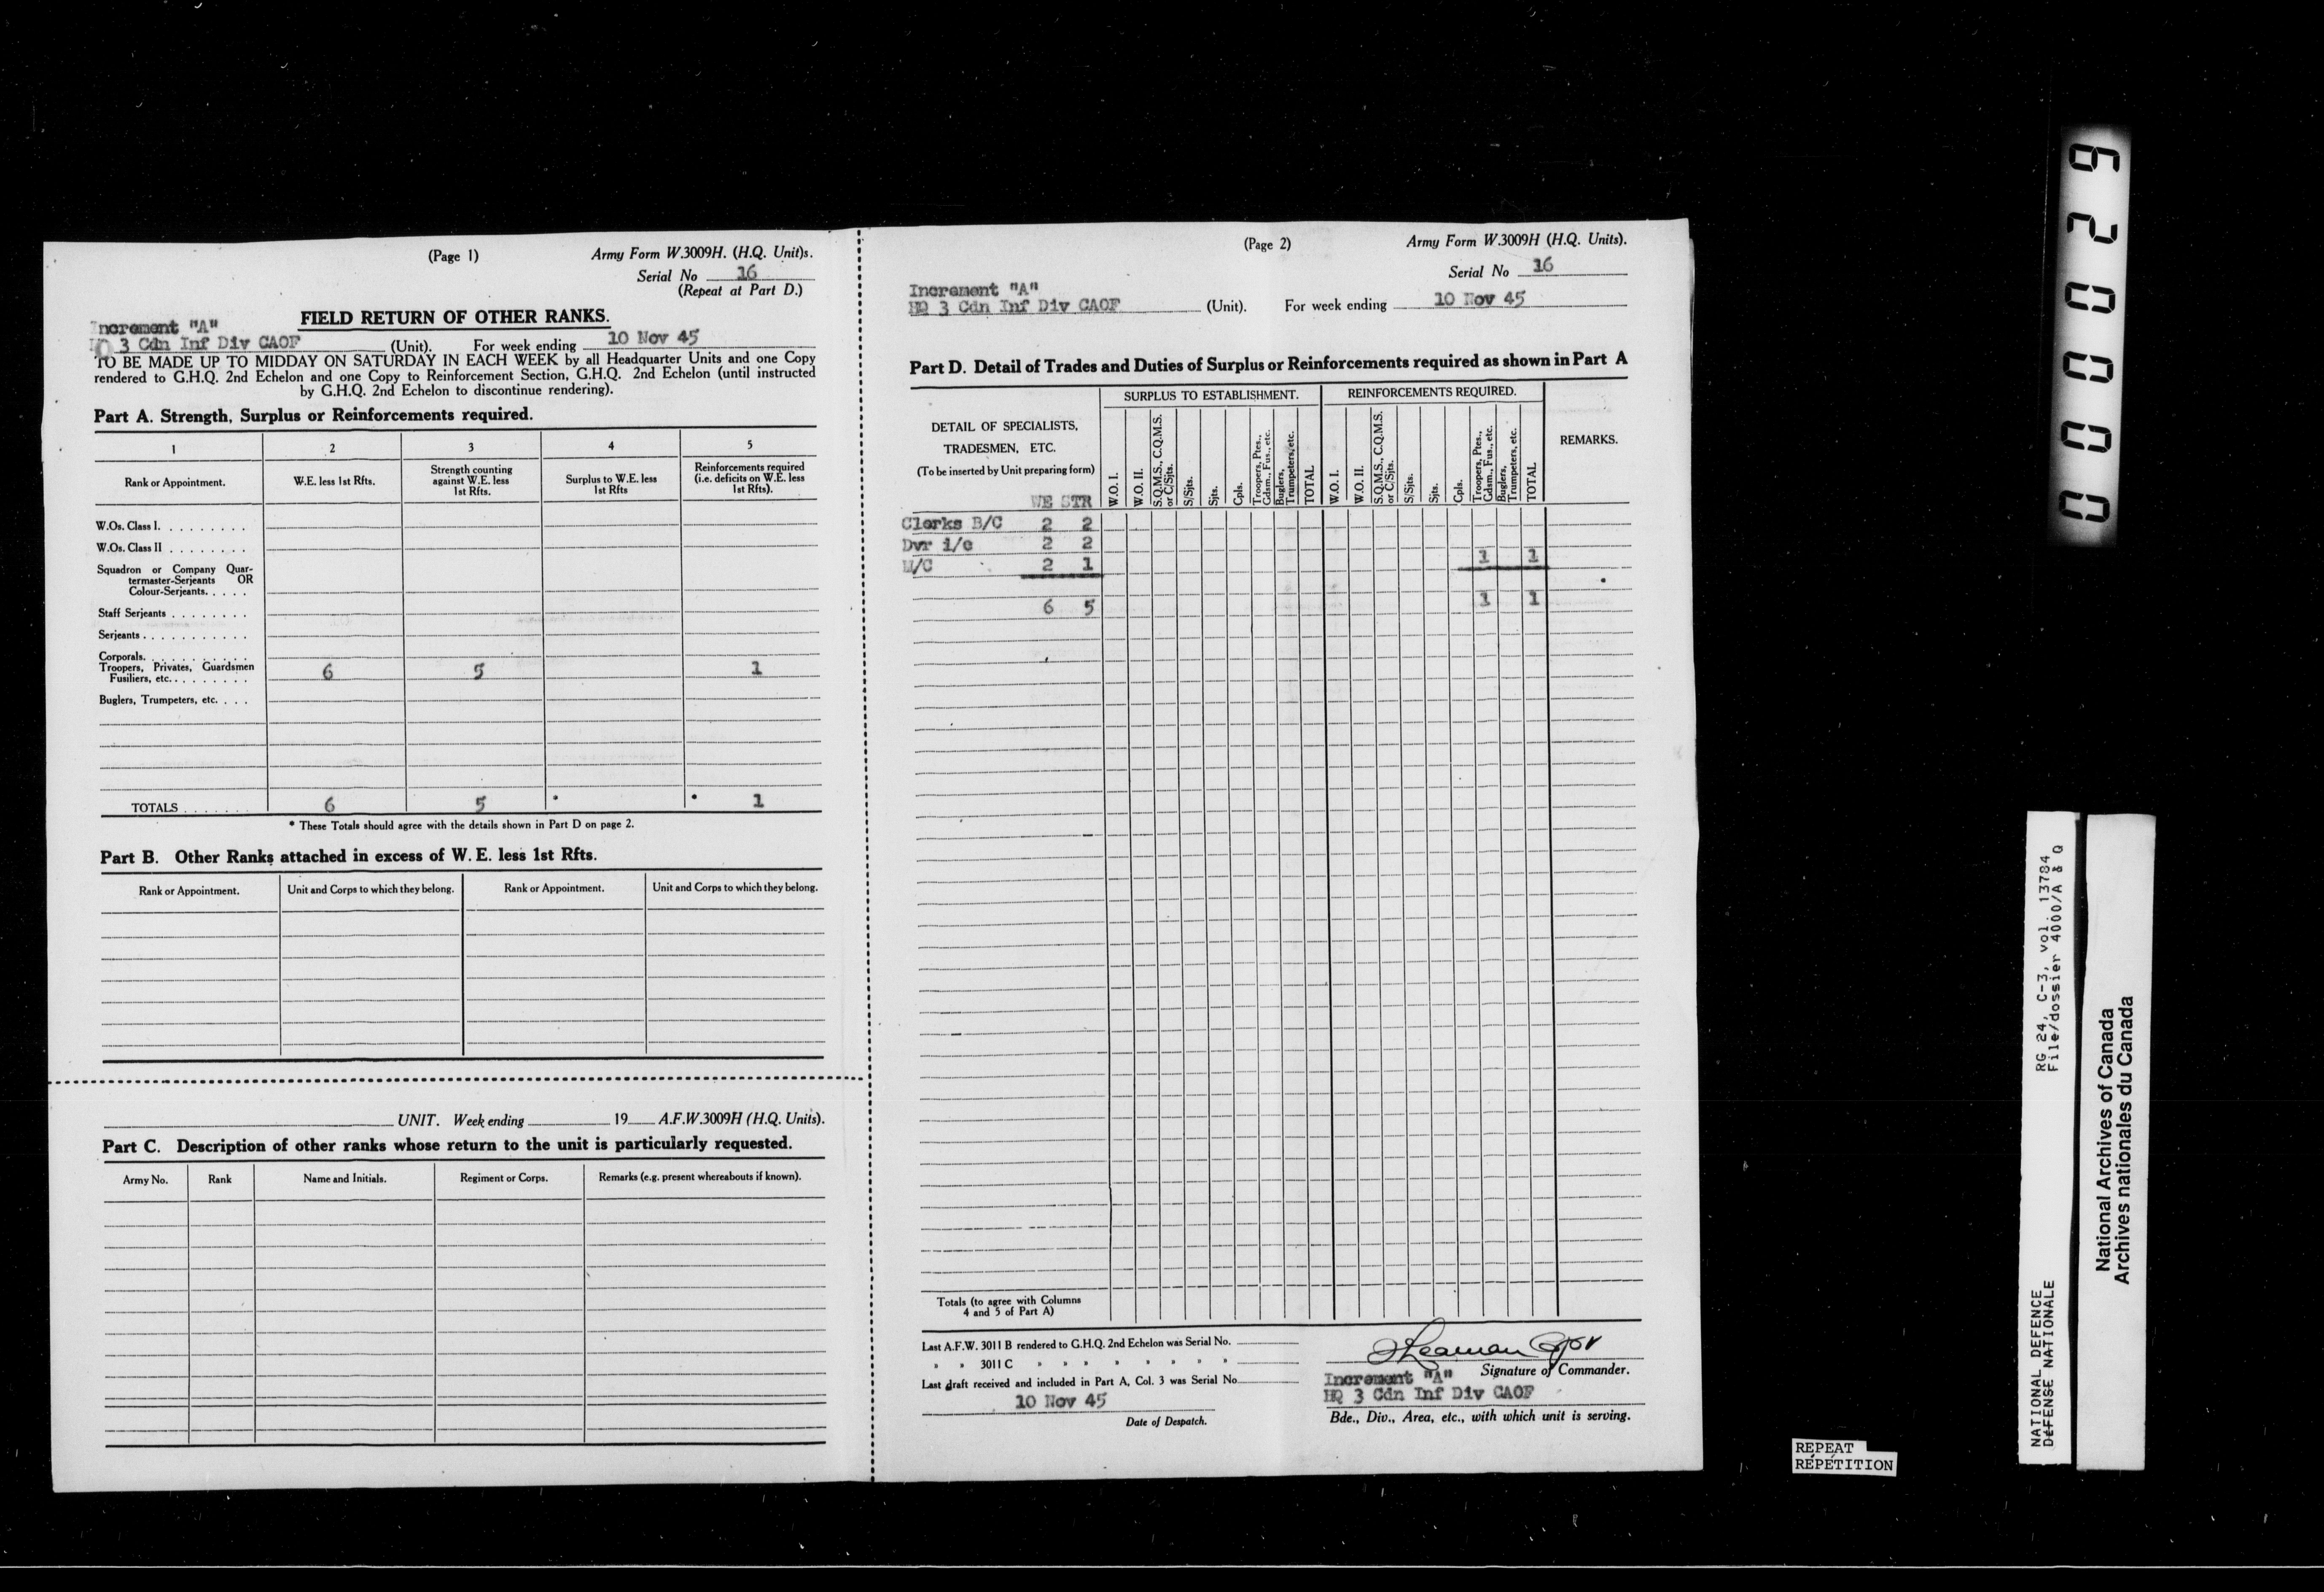 (Page 1)
Army Form W.3009H. (H.Q. Unit)s.
Serial No 16
(Repeat at Part D.)
FIELD RETURN OF OTHER RANKS.
Increment "A"
HQ 3 Cdn Inf Div CAOF (Unit). For week ending 10 Nov 45
TO BE MADE UP TO MIDDAY ON SATURDAY IN EACH WEEK by all Headquarter Units and one Copy
rendered to G.H.Q. 2nd Echelon and one Copy to Reinforcement Section, G.H.Q. 2nd Echelon (until instructed
by G.H.Q. 2nd Echelon to discontinue rendering).
Part A. Strength, Surplus or Reinforcements required.
1 2 3 4 5
Rank or Appointment.
W.E. less 1st Rfts.
Strength counting
against W.E. less
1st Rfts.
Surplus to W.E. less
1st Rfts
Reinforcements required
(i.e. deficits on W.E. less
1st Rfts).
W.Os. Class I. . . . . . . . .
W.Os. Class II . . . . . . . .
Squadron or Company Quar-
termaster-Serjeants OR
Colour-Serjeants. . . . .
Staff Serjeants . . . . . . . .
Serjeants . . . . . . . . . . .
Corporals. . . . . . . . . . .
Troopers, Privates, Guardsmen
Fusiliers, etc. . . . . . . . . 6 5 1
Buglers, Trumpeters, etc. . . .
TOTALS . . . . . . . 6 5 * * 1
* These Totals should agree with the details shown in Part D on page 2.
Part B. Other Ranks attached in excess of W. E. less 1st Rfts.
Rank or Appointment. Unit and Corps to which they belong. Rank or Appointment. Unit and Corps to which they belong.
UNIT. Week ending 19 A.F.W.3009H (H.Q. Units).
Part C. Description of other ranks whose return to the unit is particularly requested.
Army No. Rank Name and Initials. Regiment or Corps. Remarks (e.g. present whereabouts if known).
(Page 2)
Army Form W.3009H (H.Q. Units).
Serial No 16
Increment "A"
HQ 3 Cdn Inf Div CAOF (Unit). For week ending 10 Nov 45
Part D. Detail of Trades and Duties of Surplus or Reinforcements required as shown in Part A
DETAIL OF SPECIALISTS,
TRADESMEN, ETC.
(To be inserted by Unit preparing form)
WE STR
SURPLUS TO ESTABLISHMENT.
W.O. I.
W.O. II.
S.Q.M.S., C.Q.M.S.
or C/Sjts.
S/Sjts.
Sjts.
Cpls.
Troopers, Ptes.,
Gdsm., Fus., etc.
Buglers,
Trumpeters, etc.
TOTAL
REINFORCEMENTS REQUIRED.
W.O. I.
W.O. II.
S.Q.M.S., C.Q.M.S.
or C/Sjts.
S/Sjts.
Sjts.
Cpls.
Troopers, Ptes.,
Gdsm., Fus., etc.
Buglers,
Trumpeters, etc.
TOTAL
REMARKS.
Clerks B/C 2 2
Dvr i/c 2 2
M/C 2 1 1 1
6 5 1 1
Totals (to agree with Columns
4 and 5 of Part A)
Last A.F.W. 3011 B rendered to G.H.Q. 2nd Echelon was Serial No.
" " 3011 C " " " " " " " "
Last draft received and included in Part A, Col. 3 was Serial No
10 Nov 45
Date of Despatch.
Signature of Commander.
Increment "A"
HQ 3 Cdn Inf Div CAOF
Bde., Div., Area, etc., with which unit is serving.
REPEAT
RÉPÉTITION
000029
RG 24, C-3, vol. 13784
File/dossier 4000/A & Q
NATIONAL DEFENCE
DÉFENSE NATIONALE
National Archives of Canada
Archives nationales du Canada